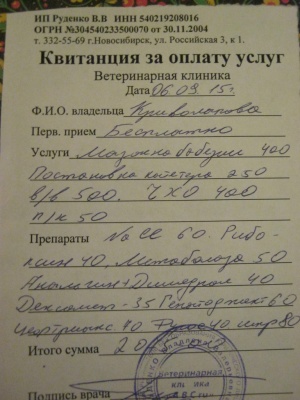 ИП Руденко В.В ИНН 540219208016
ОГРН №304540233500070 от 30.11.2004
т. 332-55-69 г.Новосибирск, ул. Российская 3, к 1.
Квитанция за оплату услуг
Ветеринарная клиника
Дата 06.09.15г.
Ф.И.О. владельца
Перв. прием Бесплатно
Услуги Мазок на бабезии 400
Постановка катетера 250
в/в 500. ЧХО 400
п/к 50
Препараты NaCl 60. Рибо-
ксин 40. Метаболаза 50
Анальгин+Димедрол 40
Дексамет-35 60
40 80
Итого сумма
Ветеринарная
клиника
Подпись врача